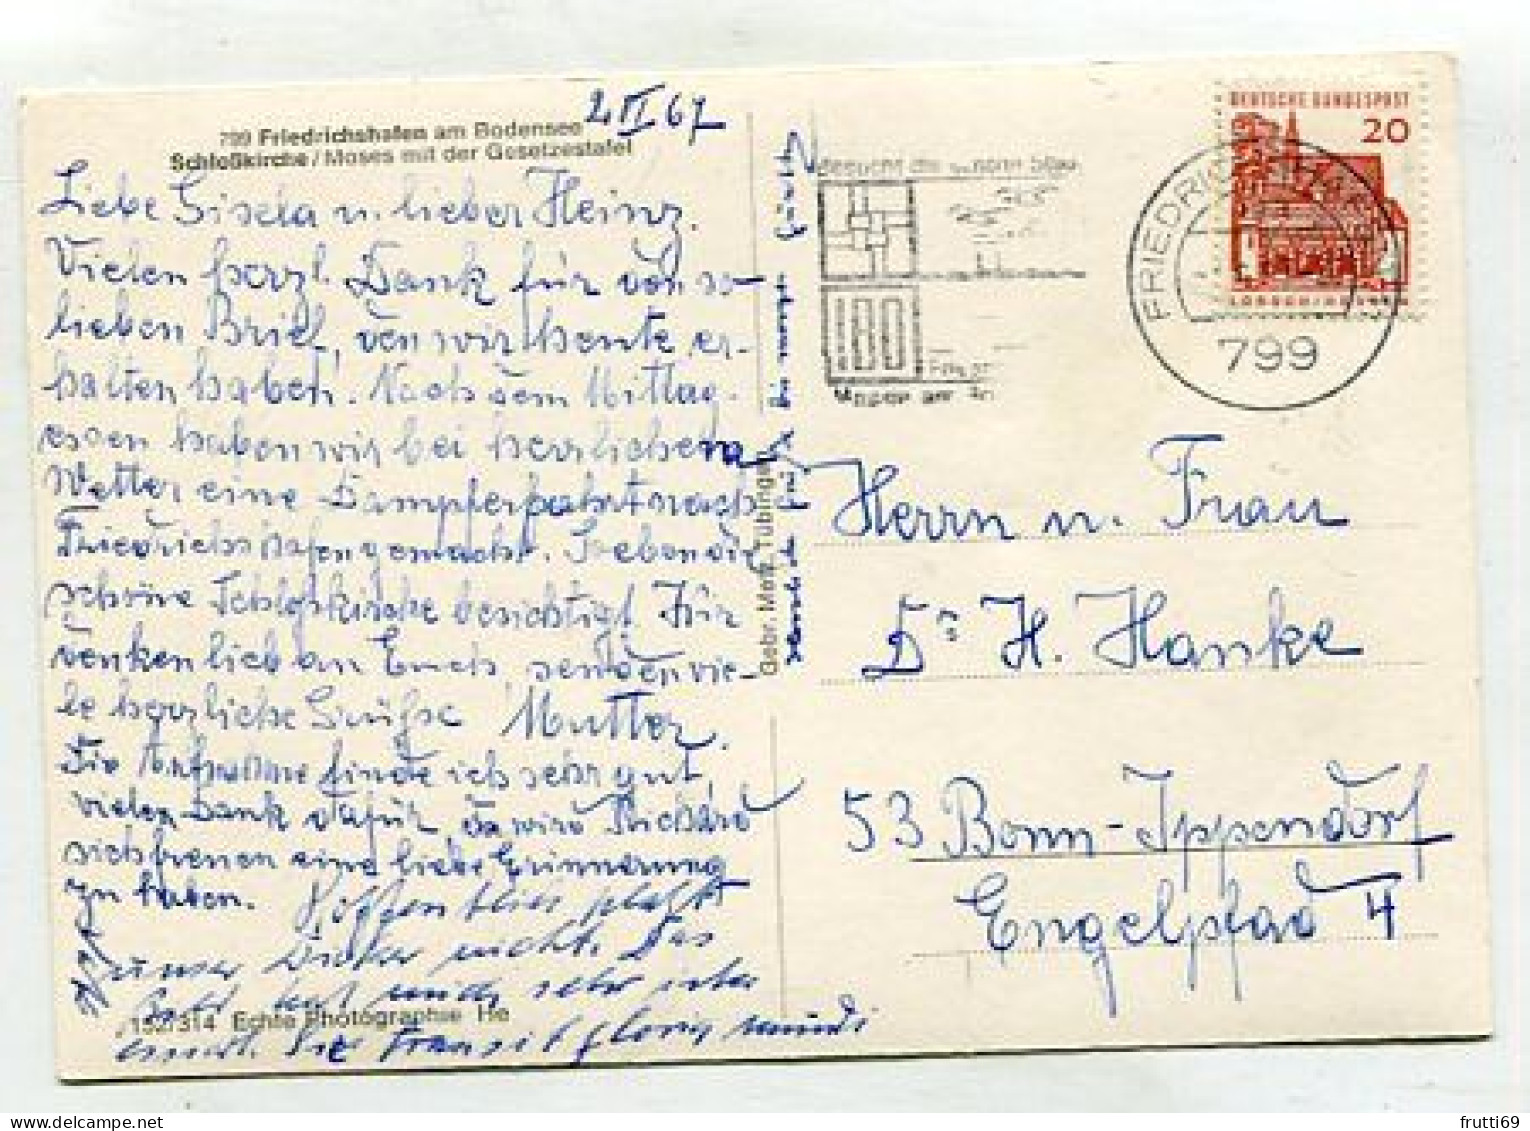 799 Friedrichshafen am Bodensee
Schloßkirche / Moses mit der Gesetzestafel
67
Liebe Gisela u. lieber Heinz.
Vielen herzl. Dank für den so
lieben Brief, den wir heute er-
halten haben. Nach dem Mittag-
essen haben wir bei herrlichem
Wetter eine Dampferfahrt nach
Friedrichshafen gemacht. Soeben die
schöne Schloßkirche besichtigt. Wir
denken lieb an Euch, senden vie-
le herzliche Grüße Mutter.
Die Aufnahme finde ich sehr gut,
vielen Dank dafür, da wird Richard
sich freuen eine liebe Erinnerung
zu haben. Hoffentlich platzt
unser nicht. Das
mich sehr
ernst. Sic transit gloria mundi
132/314 Echte Photographie He
Gebr. Metz, Tübingen
DEUTSCHE BUNDESPOST
20
LORSCH/HESSEN
FRIEDRICHSHAFEN
799
Besucht die
Herrn u. Frau
Dr. H. Hanke
53 Bonn-Ippendorf
Engelpfad 4
frutti69